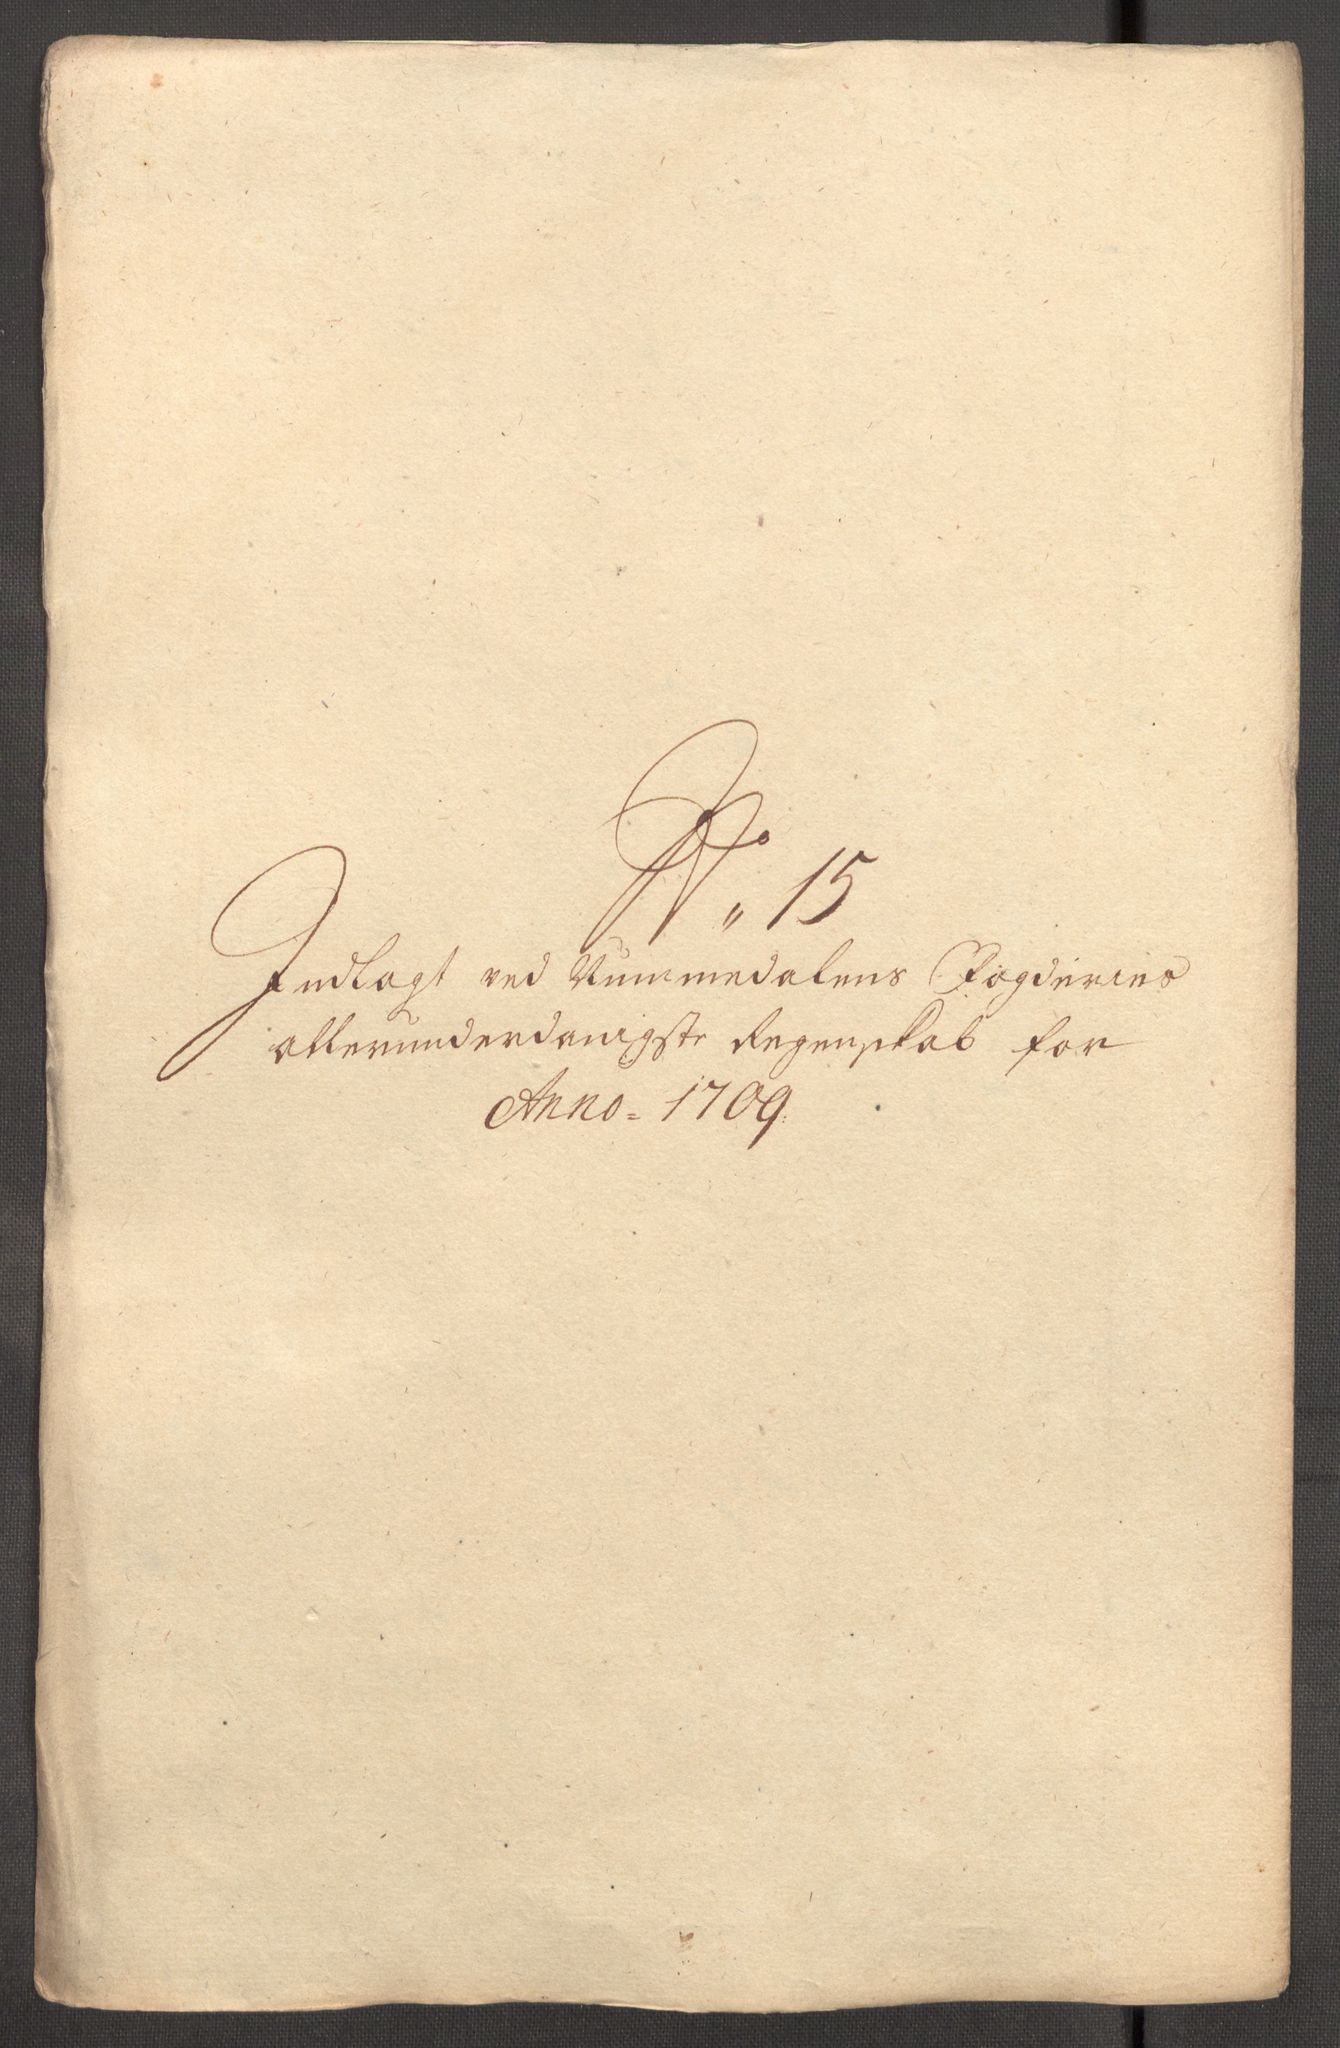 No. 15
Indlagt ved Nummedalens Fogderies
allerunderdanigste Regenskab for
Anno= 1709.